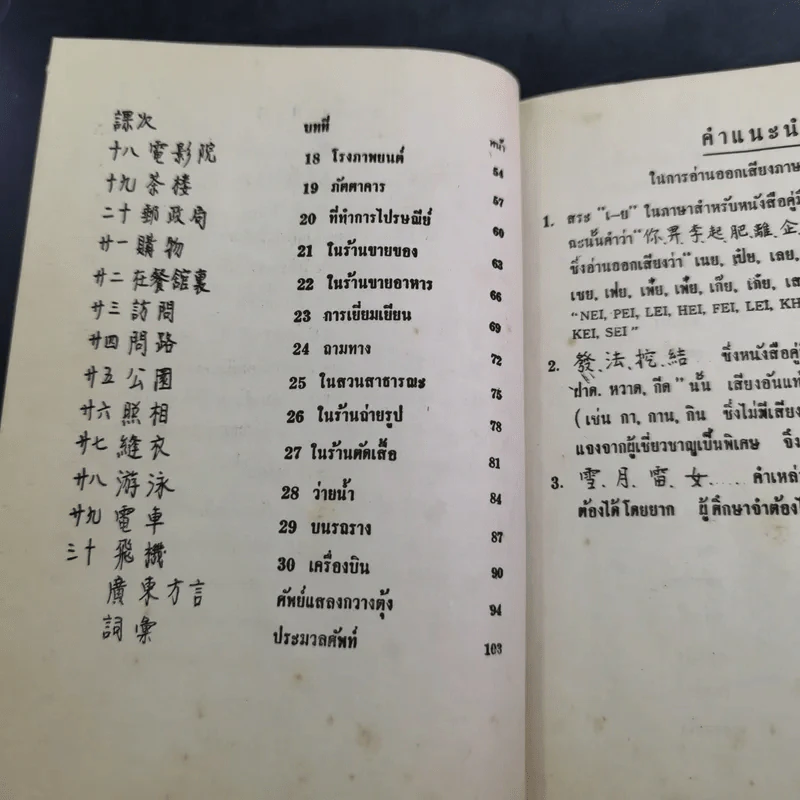 課次 บทที่ หน้า
十八 電影院 18 โรงภาพยนต์ 54
十九 茶楼 19 ภัตตาคาร 57
二十 郵政局 20 ที่ทำการไปรษณีย์ 60
廿一 購物 21 ในร้านขายของ 63
廿二 在餐舘裏 22 ในร้านขายอาหาร 66
廿三 訪問 23 การเยี่ยมเยียน 69
廿四 問路 24 ถามทาง 72
廿五 公園 25 ในสวนสาธารณะ 75
廿六 照相 26 ในร้านถ่ายรูป 78
廿七 縫衣 27 ในร้านตัดเสื้อ 81
廿八 游泳 28 ว่ายน้ำ 84
廿九 電車 29 บนรถราง 87
三十 飛機 30 เครื่องบิน 90
廣東方言 ศัพย์แสลงกวางตุ้ง 94
詞彙 ประมวลศัพท์ 103
คำแนะนำ
ในการอ่านออกเสียงภาษ
1. สระ "เ–ย" ในภาษาสำหรับหนังสือคู่มื
ฉะนั้นคำว่า "你, 畀, 李, 起, 肥, 離, 企,
ซึ่งอ่านออกเสียงว่า "เนย, เปีย, เลย,
เชย, เฟย, เพ้ย, เพี้ย, เกีย, เกี๋ย, เส
"NEI, PEI, LEI, HEI, FEI, LEI, KH
KEI, SEI"
2. 發, 法, 挖, 結 ซึ่งหนังสือคู่มื
ปาด, หวาด, กีด" นั้น เสียงอันแท้
(เช่น กา, กาน, กิน ซึ่งไม่มีเสียง
แจงจากผู้เชี่ยวชาญเป็นพิเศษ จึง
3. 雪, 月, 雷, 女..... คำเหล่า
ต้องได้โดยยาก ผู้ศึกษาจำต้องไ